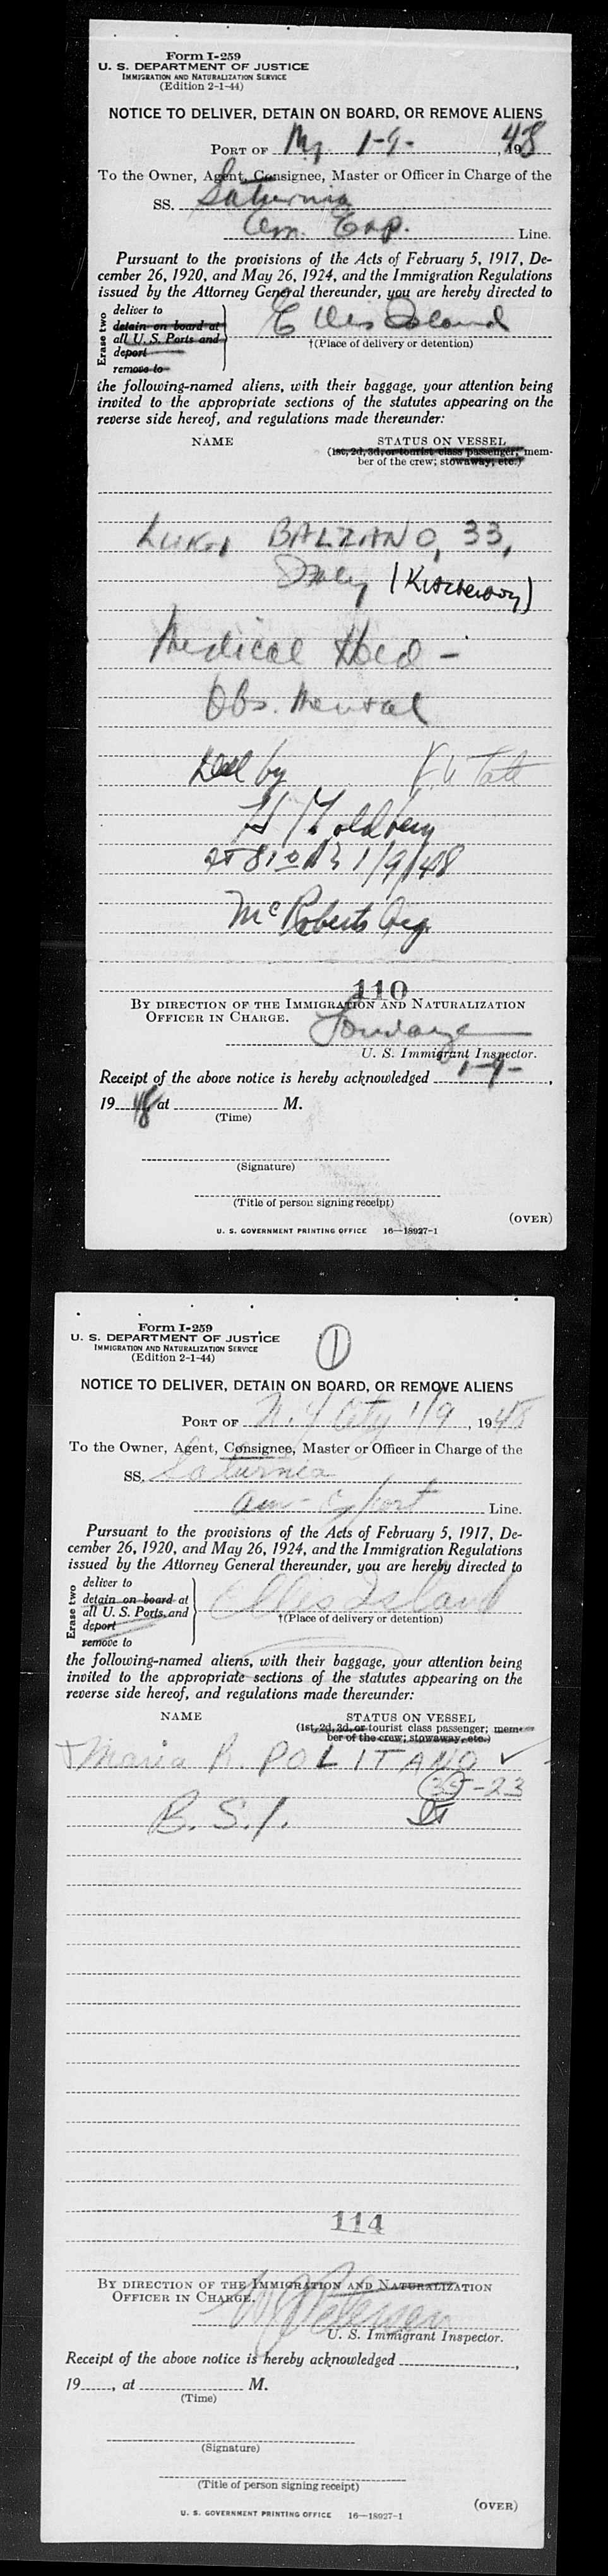 Form I-259
U. S. DEPARTMENT OF JUSTICE
IMMIGRATION AND NATURALIZATION SERVICE
(Edition 2-1-44)
NOTICE TO DELIVER, DETAIN ON BOARD, OR REMOVE ALIENS
PORT OF NY 1-9-, 1948
To the Owner, Agent, Consignee, Master or Officer in Charge of the
SS. Saturnia
Am. Exp. Line.
Pursuant to the provisions of the Acts of February 5, 1917, De-
cember 26, 1920, and May 26, 1924, and the Immigration Regulations
issued by the Attorney General thereunder, you are hereby directed to
Erase two
deliver to
detain on board at
all U. S. Ports and
deport
remove to
Ellis Island
†(Place of delivery or detention)
the following-named aliens, with their baggage, your attention being
invited to the appropriate sections of the statutes appearing on the
reverse side hereof, and regulations made thereunder:
NAME STATUS ON VESSEL
(1st, 2d, 3d, or tourist class passenger; mem-
ber of the crew; stowaway, etc.)
LUIGI BALZANO, 33,
Italy (Kitchenboy)
Medical Hold -
Obs. Mental
Del by
H Goldberg
at 810 1/9/48
McRoberts
110
BY DIRECTION OF THE IMMIGRATION AND NATURALIZATION
OFFICER IN CHARGE.
U. S. Immigrant Inspector.
Receipt of the above notice is hereby acknowledged 1-9-,
1948, at M.
(Time)
(Signature)
(Title of person signing receipt)
(OVER)
U. S. GOVERNMENT PRINTING OFFICE 16—18927-1
Form I-259
U. S. DEPARTMENT OF JUSTICE
IMMIGRATION AND NATURALIZATION SERVICE
(Edition 2-1-44)
1
NOTICE TO DELIVER, DETAIN ON BOARD, OR REMOVE ALIENS
PORT OF N. Y City 1/9, 1948
To the Owner, Agent, Consignee, Master or Officer in Charge of the
SS. Saturnia
Am-Export Line.
Pursuant to the provisions of the Acts of February 5, 1917, De-
cember 26, 1920, and May 26, 1924, and the Immigration Regulations
issued by the Attorney General thereunder, you are hereby directed to
Erase two
deliver to
detain on board at
all U. S. Ports and
deport
remove to
Ellis Island
†(Place of delivery or detention)
the following-named aliens, with their baggage, your attention being
invited to the appropriate sections of the statutes appearing on the
reverse side hereof, and regulations made thereunder:
NAME STATUS ON VESSEL
(1st, 2d, 3d, or tourist class passenger; mem-
ber of the crew; stowaway, etc.)
Maria R. POLITANO ✓
35-23
B.S.I.
114
BY DIRECTION OF THE IMMIGRATION AND NATURALIZATION
OFFICER IN CHARGE.
W J Petersen
U. S. Immigrant Inspector.
Receipt of the above notice is hereby acknowledged ,
19 , at M.
(Time)
(Signature)
(Title of person signing receipt)
(OVER)
U. S. GOVERNMENT PRINTING OFFICE 16—18927-1